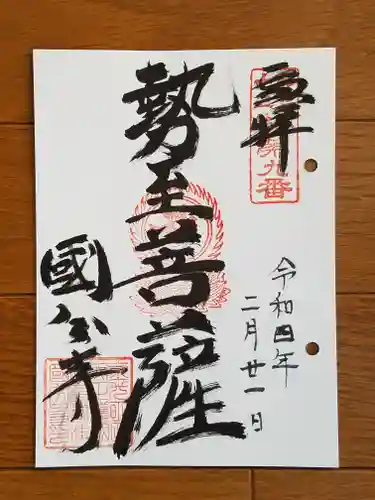 奉拝
第九番
令和四年
二月廿一日
勢至菩薩
國分寺